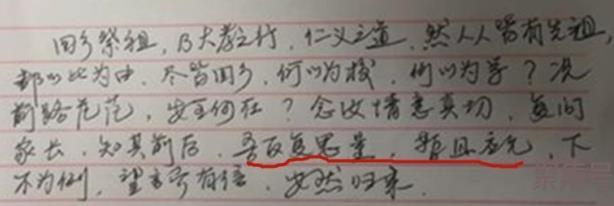 回乡祭祖，乃大孝之行，仁义之道，然人人皆有先祖，
都以此为由，尽皆回乡，何以为校，何以为学？况
前路茫茫，安全何在？念汝情意真切，复问
家长，知其前后，吾反复思量，暂且应允，下
不为例，望言守有信，安然归来。